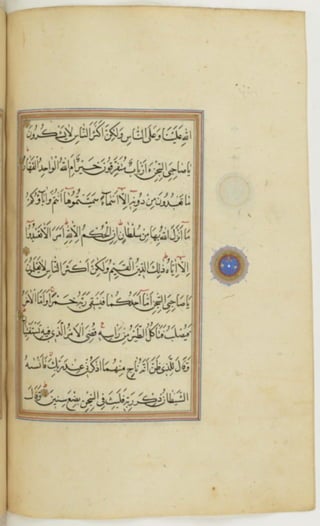 الله علينا وعلى الناس ولكن أكثر الناس لا يشكرون
يا صاحبي السجن ءأرباب متفرقون خير أم الله الواحد القهار
ما تعبدون من دونه إلا أسماء سميتموها أنتم وآباؤكم
ما أنزل الله بها من سلطان إن الحكم إلا لله أمر ألا تعبدوا
إلا إياه ذلك الدين القيم ولكن أكثر الناس لا يعلمون
يا صاحبي السجن أما أحدكما فيسقي ربه خمرا وأما الآخر
فيصلب فتأكل الطير من رأسه قضي الأمر الذي فيه تستفتيان
وقال للذي ظن أنه ناج منهما اذكرني عند ربك فأنساه
الشيطان ذكر ربه فلبث في السجن بضع سنين وقال